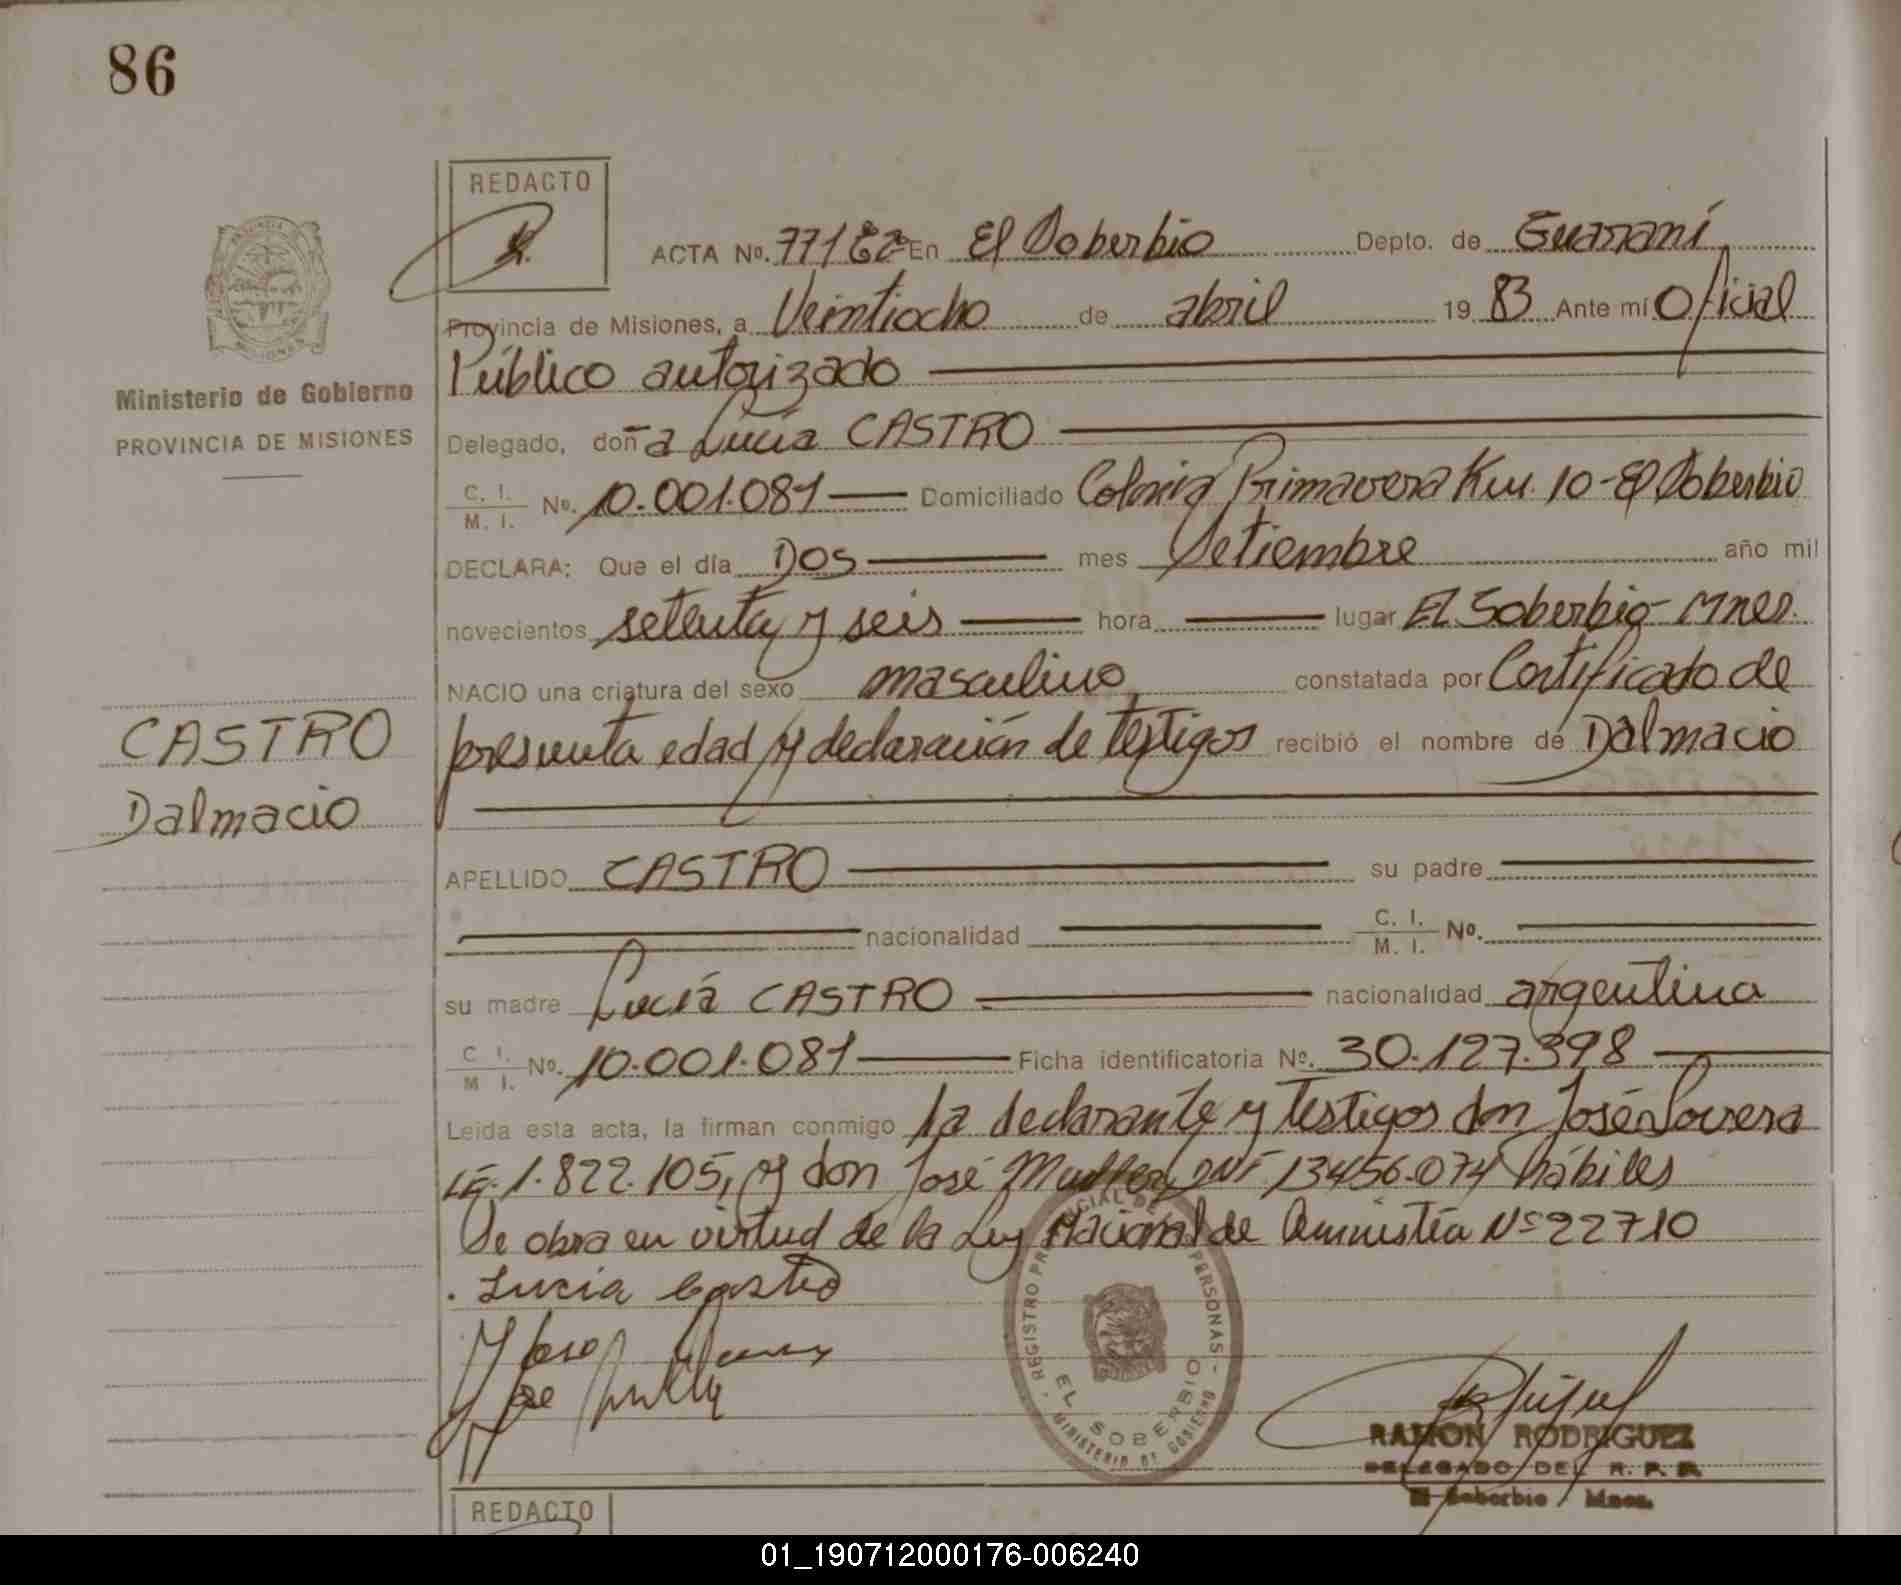 86
REDACTO
ACTA Nº. 771 En El Soberbio Depto. de Guaraní
Provincia de Misiones, a Veintiocho de abril 19 83 Ante mí Oficial
Público autorizado
Ministerio de Gobierno
PROVINCIA DE MISIONES
Delegado, doña Lucía CASTRO
C. I. / M. I. Nº. 10.001.081 Domiciliado Colonia Primavera Km. 10 - El Soberbio
DECLARA: Que el día Dos mes Setiembre año mil
novecientos setenta y seis hora lugar El Soberbio - Mnes.
NACIO una criatura del sexo masculino, constatada por Certificado de
presunta edad y declaración de testigos recibió el nombre de Dalmacio
CASTRO
Dalmacio
APELLIDO CASTRO su padre
nacionalidad C. I. / M. I. Nº.
su madre Lucía CASTRO nacionalidad argentina
C. I. / M. I. Nº. 10.001.081 Ficha identificatoria Nº. 30.127.398
Leída esta acta, la firman conmigo la declarante y testigos don José Lovera
LE. 1.822.105, y don José Muller DNI 13456.074 hábiles
Se obra en virtud de la Ley Nacional de Amnistía Nº 22710
. Lucia Castro
REGISTRO PROVINCIAL DE LAS PERSONAS -
EL SOBERBIO
MINISTERIO DE GOBIERNO
RAMON RODRIGUEZ
DELEGADO DEL R. P. P.
El Soberbio / Mnes.
REDACTO
01_190712000176-006240